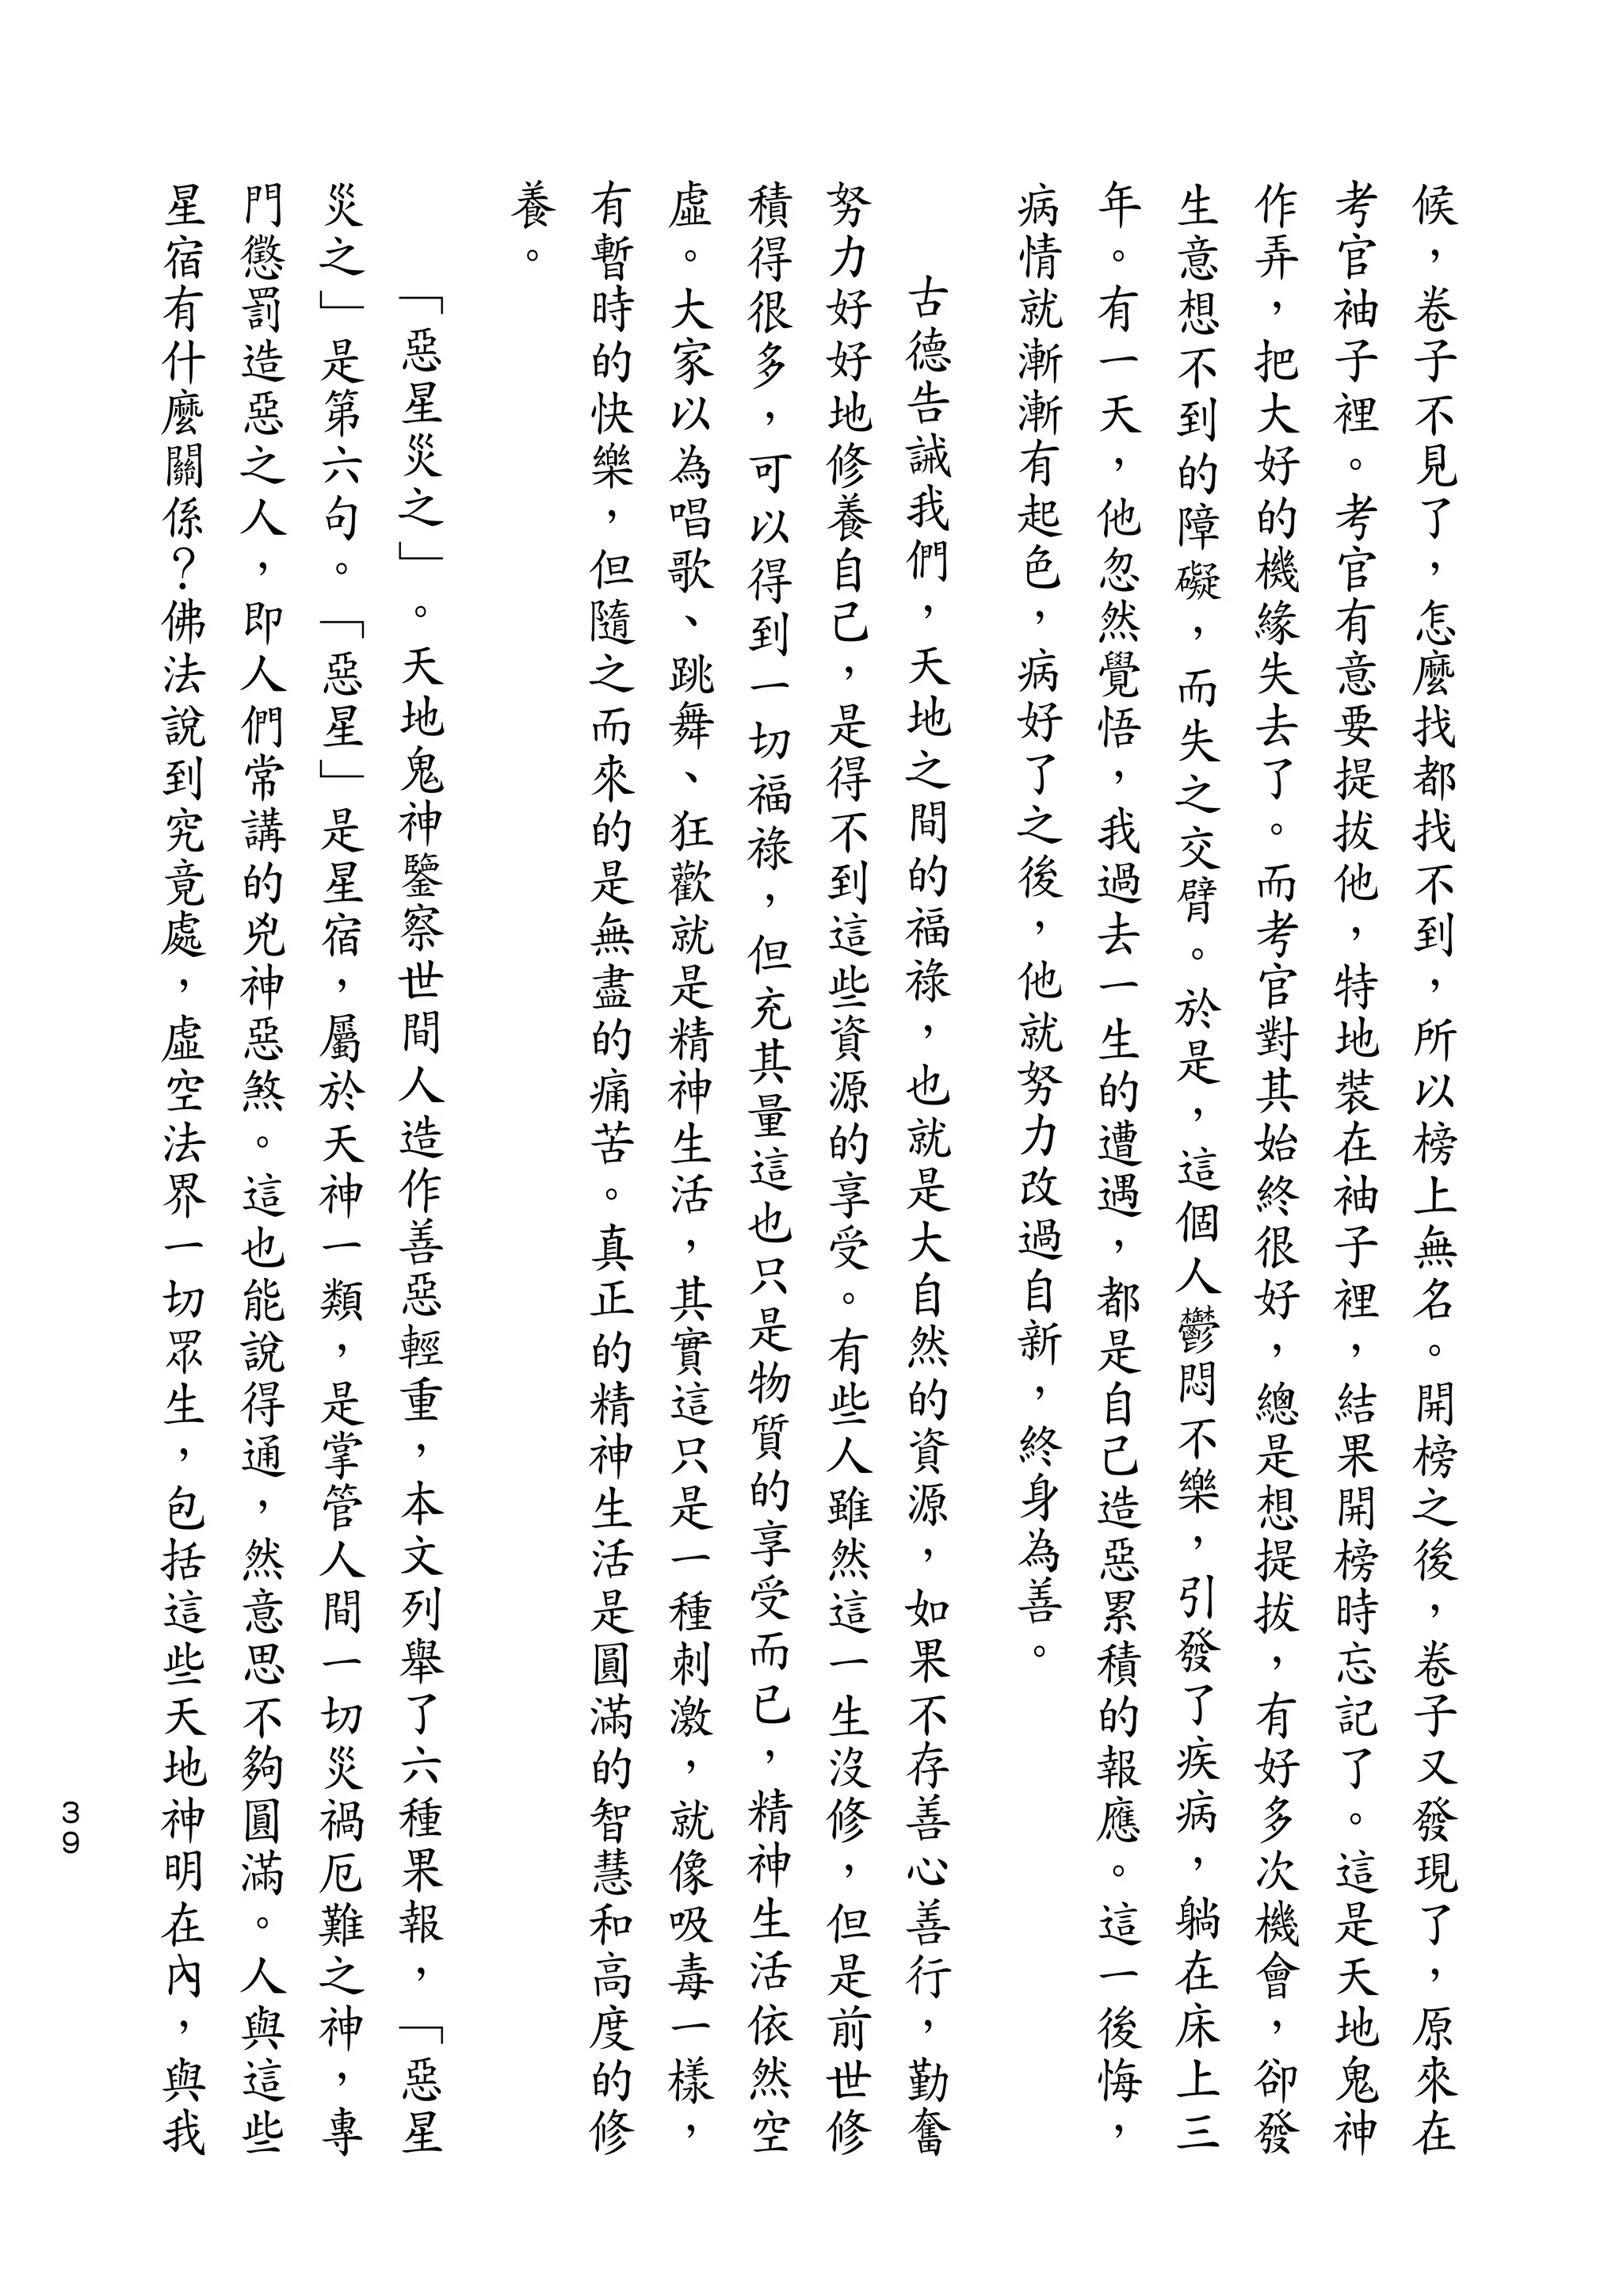 候，卷子不見了，怎麼找都找不到，所以榜上無名。開榜之後，卷子又發現了，原來在
考官袖子裡。考官有意要提拔他，特地裝在袖子裡，結果開榜時忘記了。這是天地鬼神
作弄，把大好的機緣失去了。而考官對其始終很好，總是想提拔，有好多次機會，卻發
生意想不到的障礙，而失之交臂。於是，這個人鬱悶不樂，引發了疾病，躺在床上三
年。有一天，他忽然覺悟，我過去一生的遭遇，都是自己造惡累積的報應。這一後悔，
病情就漸漸有起色，病好了之後，他就努力改過自新，終身為善。
古德告誡我們，天地之間的福祿，也就是大自然的資源，如果不存善心善行，勤奮
努力好好地修養自己，是得不到這些資源的享受。有些人雖然這一生沒修，但是前世修
積得很多，可以得到一切福祿，但充其量這也只是物質的享受而已，精神生活依然空
虛。大家以為唱歌、跳舞、狂歡就是精神生活，其實這只是一種刺激，就像吸毒一樣，
有暫時的快樂，但隨之而來的是無盡的痛苦。真正的精神生活是圓滿的智慧和高度的修
養。
「惡星災之」。天地鬼神鑒察世間人造作善惡輕重，本文列舉了六種果報，「惡星
災之」是第六句。「惡星」是星宿，屬於天神一類，是掌管人間一切災禍厄難之神，專
門懲罰造惡之人，即人們常講的兇神惡煞。這也能說得通，然意思不夠圓滿。人與這些
星宿有什麼關係？佛法說到究竟處，虛空法界一切眾生，包括這些天地神明在內，與我
39